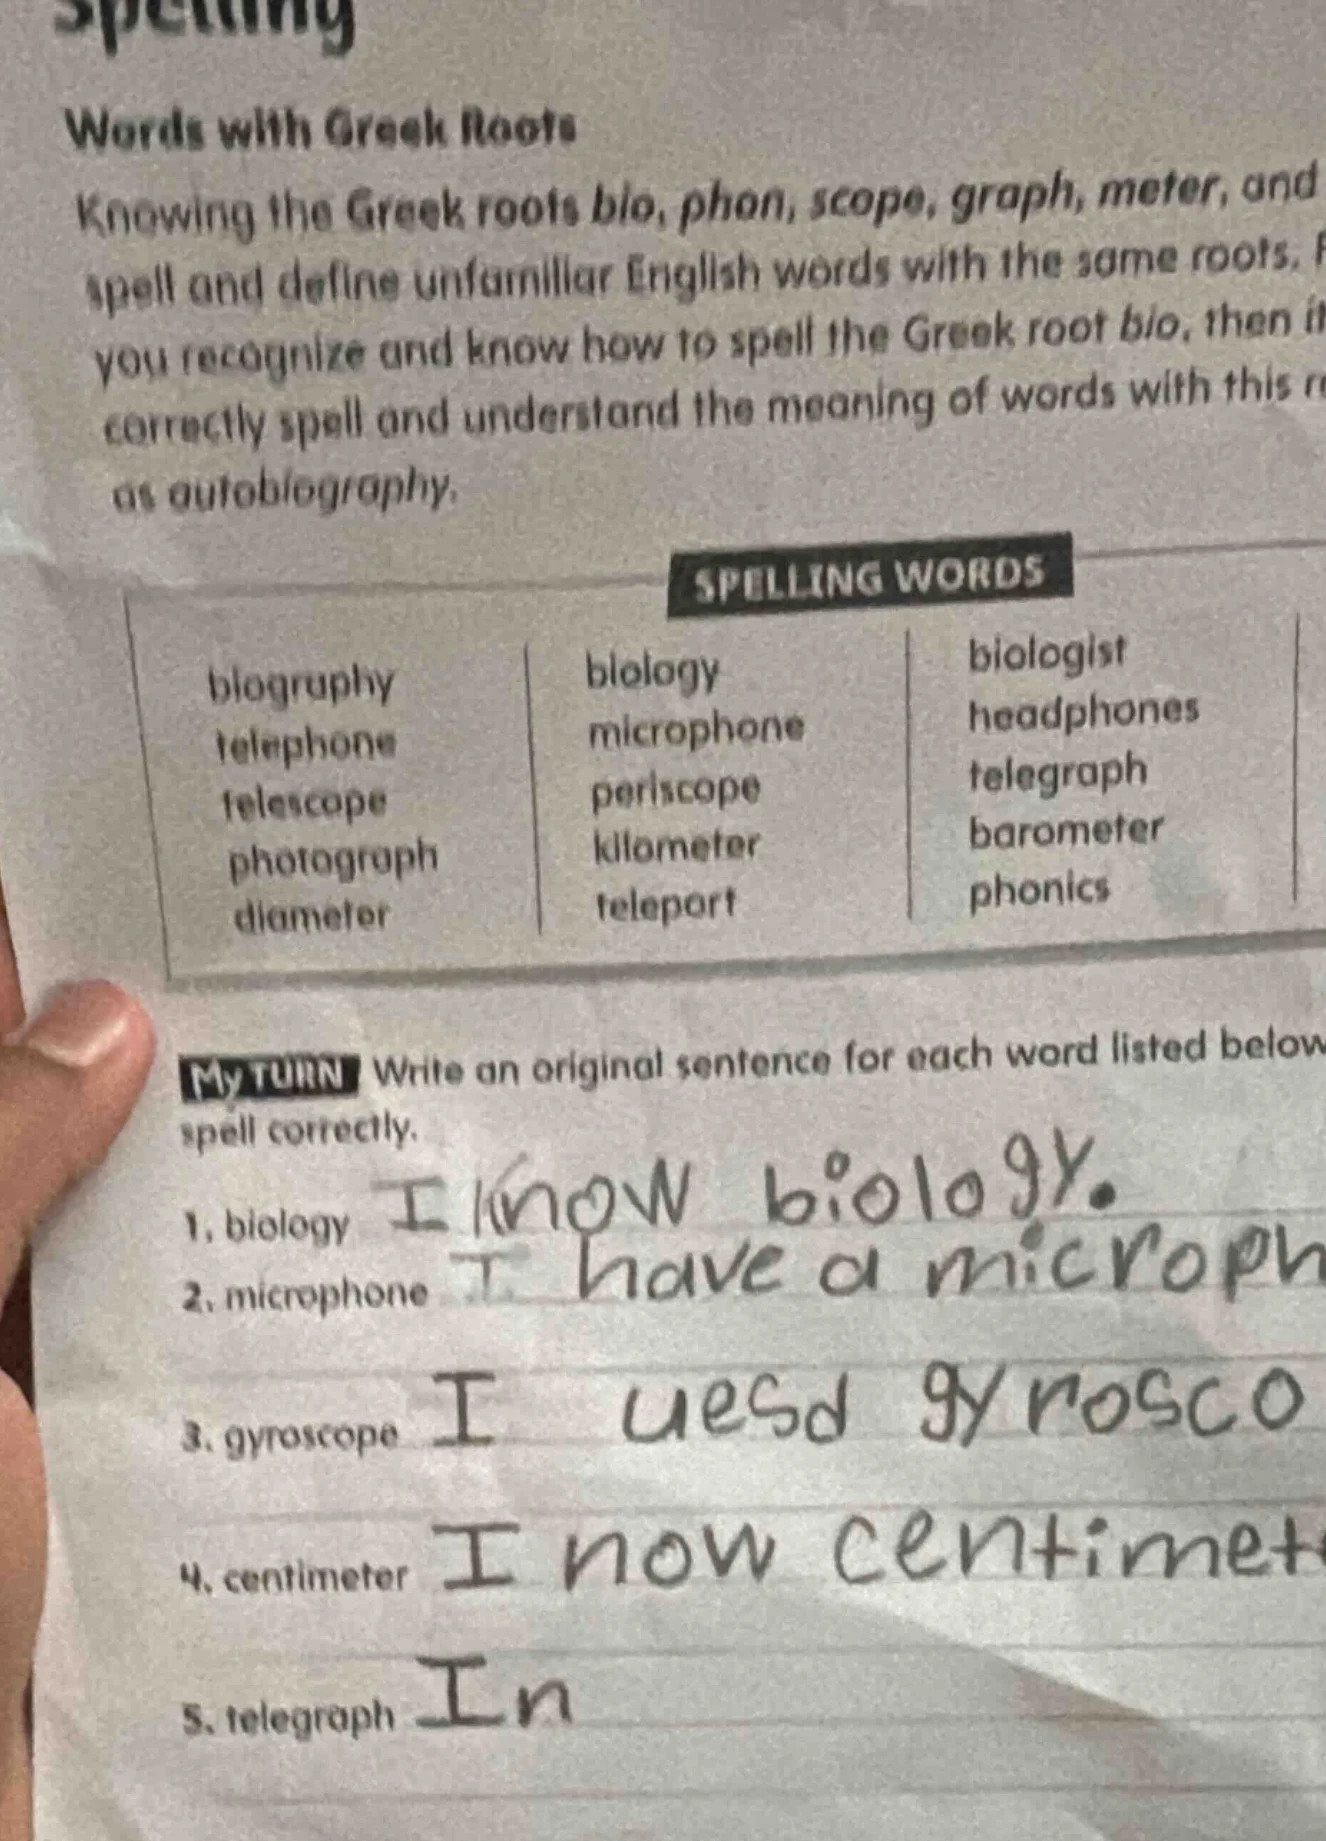 Spelling
Words with Greek Roots
Knowing the Greek roots bio, phon, scope, graph, meter, and
spell and define unfamiliar English words with the same roots.
you recognize and know how to spell the Greek root bio, then it
correctly spell and understand the meaning of words with this
as autobiography.
SPELLING WORDS
biography biology biologist
telephone microphone headphones
telescope periscope telegraph
photograph kilometer barometer
diameter teleport phonics
My TURN Write an original sentence for each word listed below
spell correctly.
1. biology I know biology.
2. microphone I have a microph
3. gyroscope I uesd gyrosco
4. centimeter I now centimet
5. telegraph In